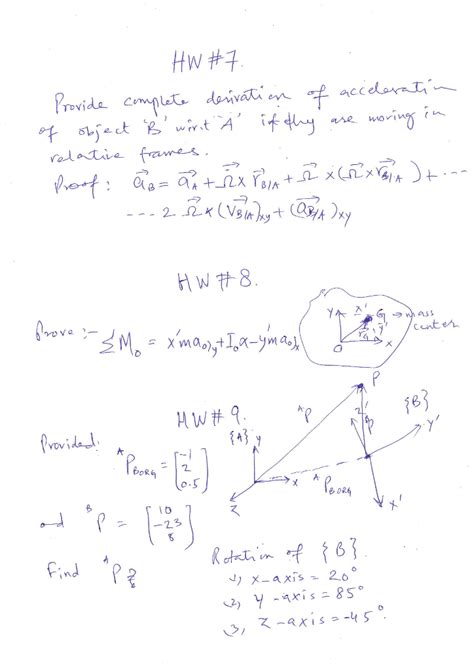 HW #7.
Provide complete derivation of acceleration
of object 'B' w.r.t 'A' if they are moving in
relative frames.
Proof: a⃗_B = a⃗_A + Ω̇⃗ × r⃗_B/A + Ω⃗ × (Ω⃗ × r⃗_B/A) + ---
--- 2 Ω⃗ × (V⃗_B/A)_xy + (a⃗_B/A)_xy
HW #8.
Prove :- ΣM_o = x'm a_o)_y + I_o α - y'm a_o)_x
y x' G → mass
center
r_G y'
O x
HW #9.
P
{B}
Provided:
^A P_BORG = [-1 2 0.5]
{A} y
^A P
z'
^B P
y'
x
^A P_BORG
z
x'
and ^B P = [10 -23 8]
Find ^A P ?
Rotation of {B}.
1, x-axis = 20°
2, y-axis = 85°
3, z-axis = -45°.